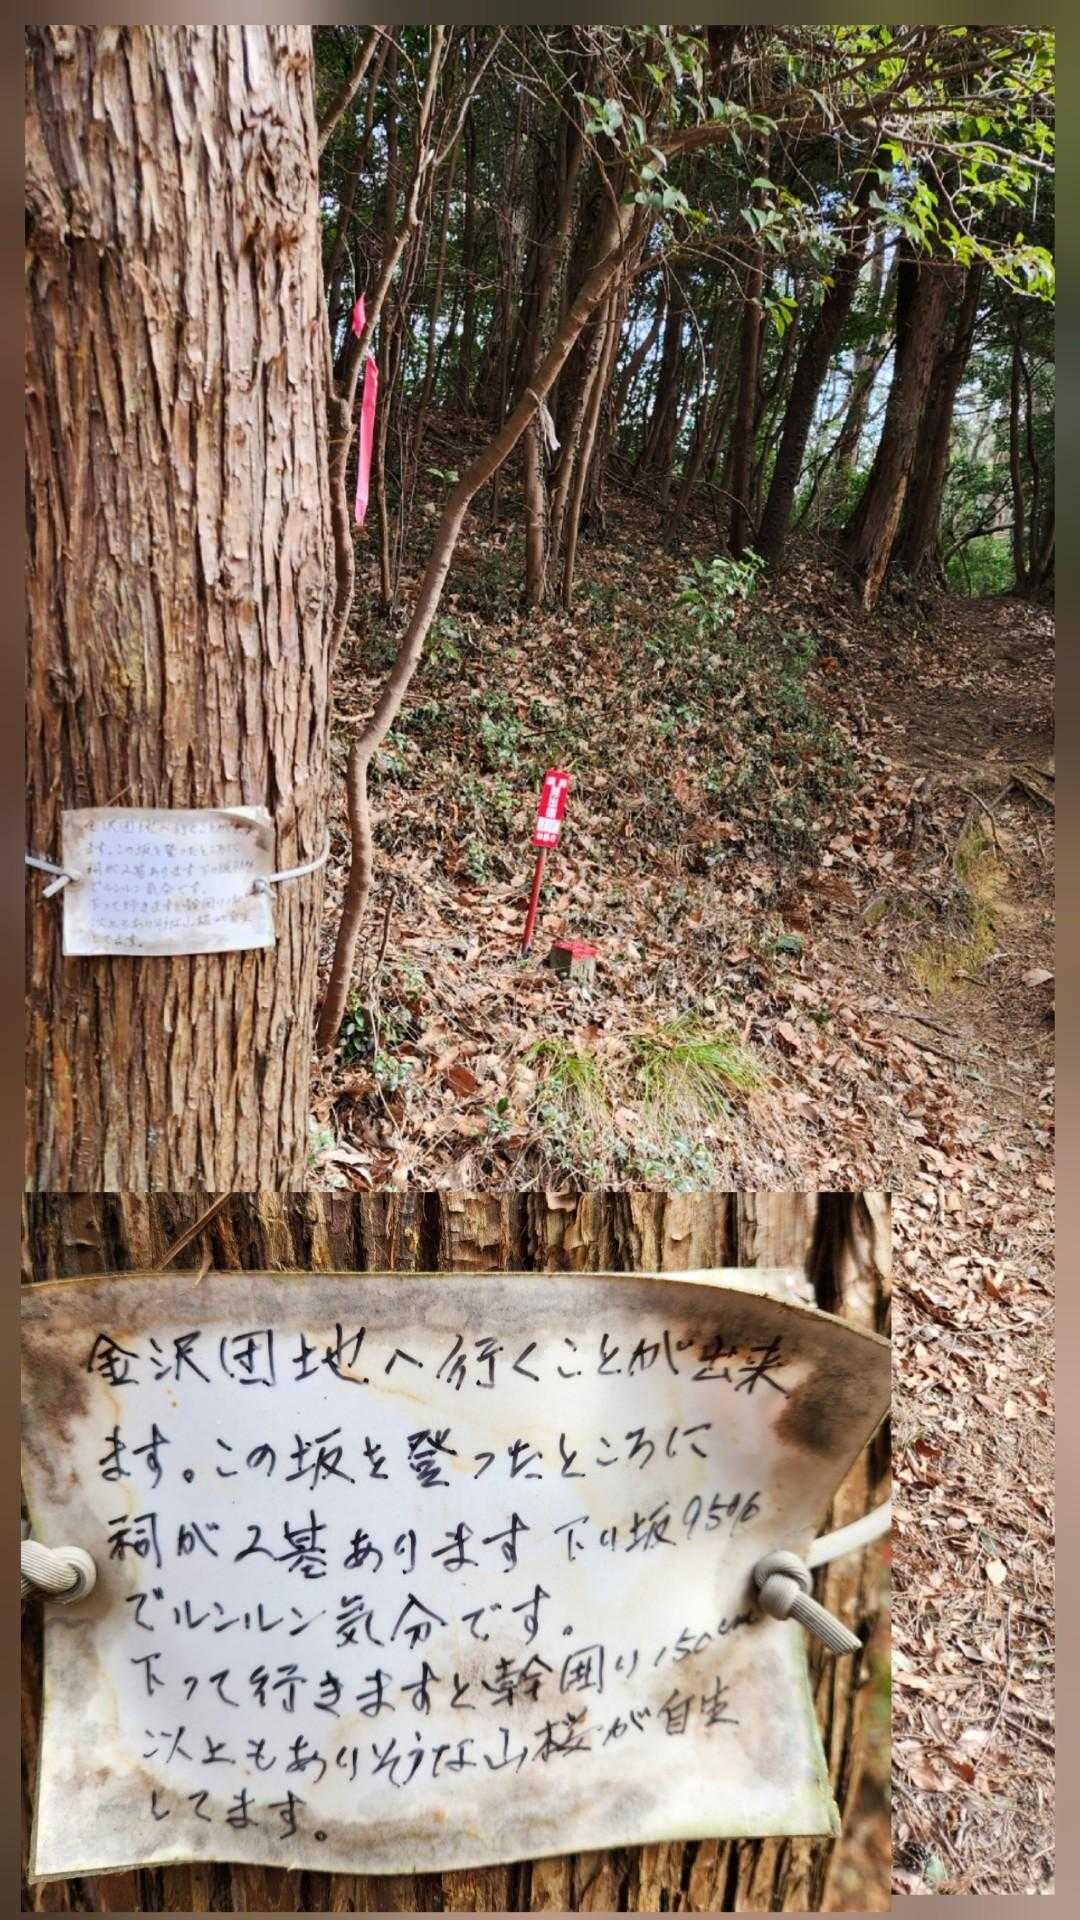 金沢団地へ行くことが出来
ます。この坂を登ったところに
祠が2基あります下り坂95%
でルンルン気分です。
下って行きますと幹囲り150cm
以上もありそうな山桜が自生
してます。